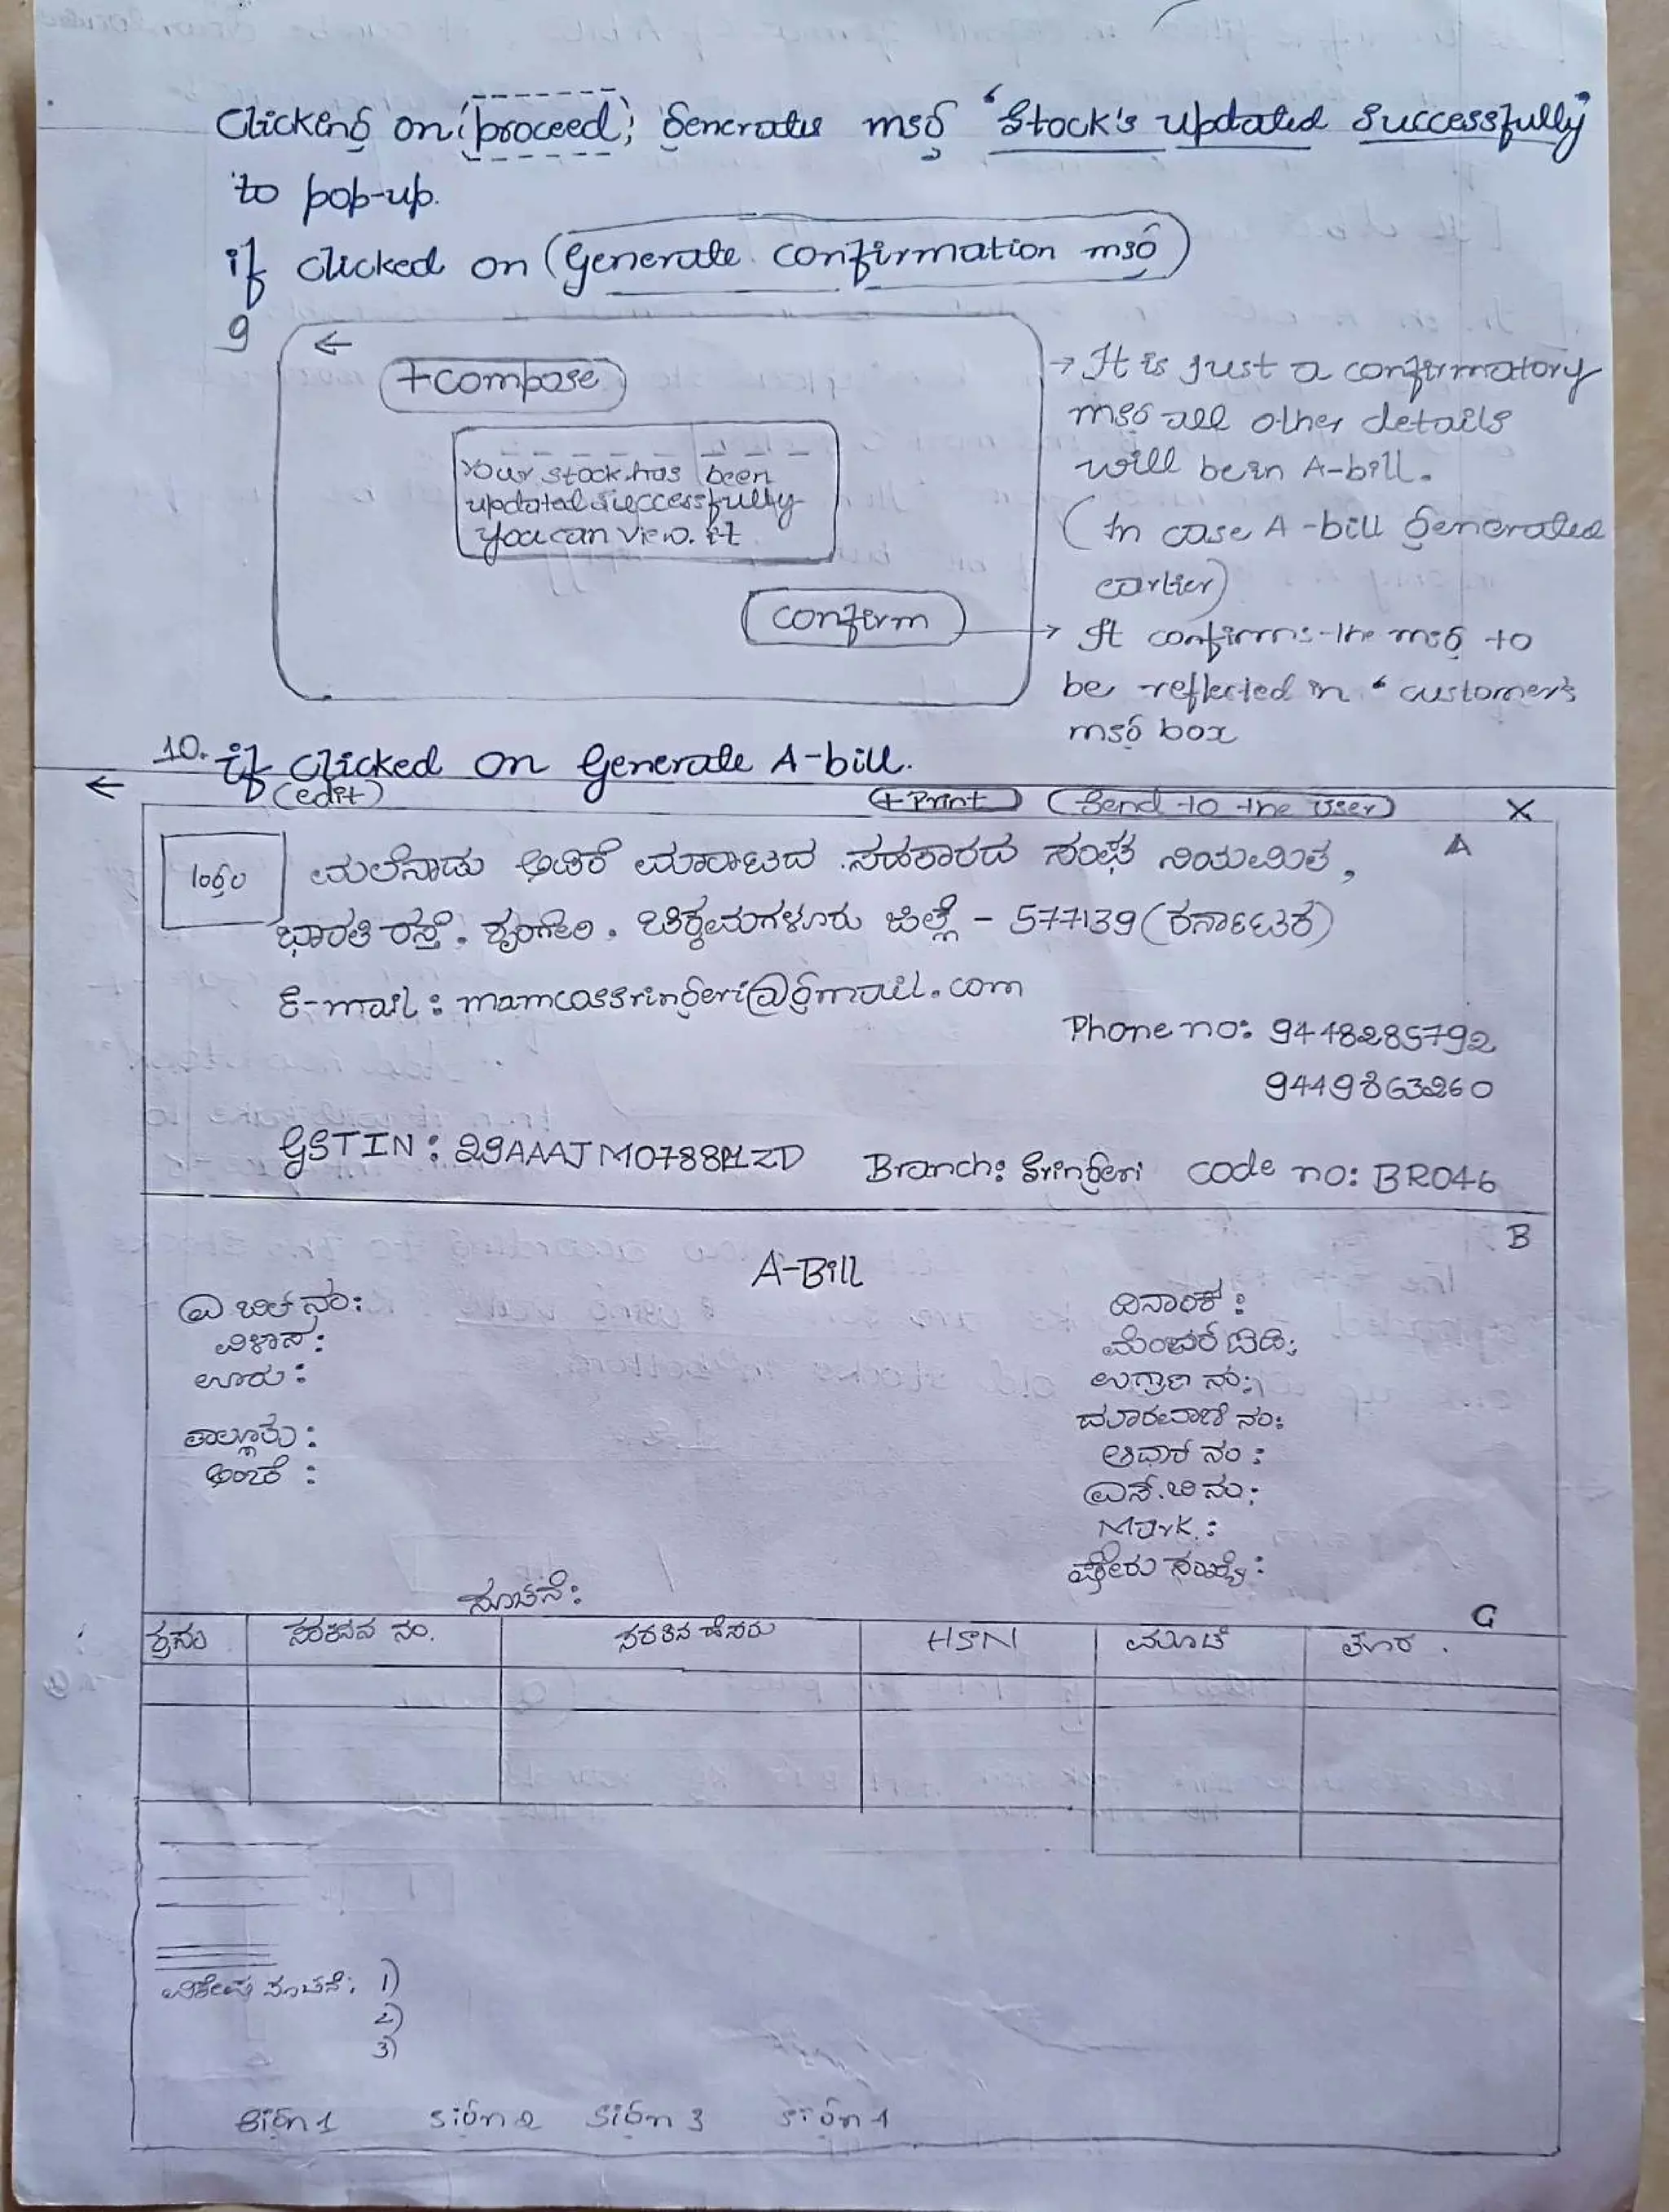 Clicking on proceed, generates msg "Stock's updated successfully"
to pop-up.
if clicked on (Generate confirmation msg)
9
←
+compose
Your stock has been
updated successfully
you can view it
confirm
→ It is just a confirmatory
msg all other details
will be in A-bill.
(In case A-bill generated
earlier)
→ It confirms the msg to
be reflected in "customer's
msg box
10. if clicked on Generate A-bill.
←
(edit) (+Print) (Send to the user) X
A
logo
ಮಲೆನಾಡು ಅಡಿಕೆ ಮಾರಾಟದ ಸಹಕಾರದ ಸಂಘ ನಿಯಮಿತ,
ಭಾರತಿ ರಸ್ತೆ, ಶೃಂಗೇರಿ, ಚಿಕ್ಕಮಗಳೂರು ಜಿಲ್ಲೆ - 577139 (ಕರ್ನಾಟಕ)
E-mail: mamcossringeri@gmail.com
Phone no: 9448285792
9449863260
GSTIN: 29AAAJM0788 Branch: Sringeri code no: BR046
B
A-Bill
ಎ ಬಿಲ್ ನಂ: ದಿನಾಂಕ:
ವಿಳಾಸ: ಮೆಂಬರ್ ಐಡಿ:
ಊರು: ಉಗ್ರಾಣ ನಂ:
ನಂ:
ತಾಲ್ಲೂಕು: ಆಧಾರ್ ನಂ:
ಅಂಚೆ: ಎಸ್.ಬಿ ನಂ:
Mark:
ಷೇರು ಸಂಖ್ಯೆ:
ಸೂಚನೆ:
C
ಕ್ರಸಂ ಸರಕಿನ ನಂ. ಸರಕಿನ ಹೆಸರು HSN ಮೂಟೆ ತೂಕ.
ವಿಶೇಷ ಸೂಚನೆ: 1)
2)
3)
Sign 1 sign 2 sign 3 sign 4